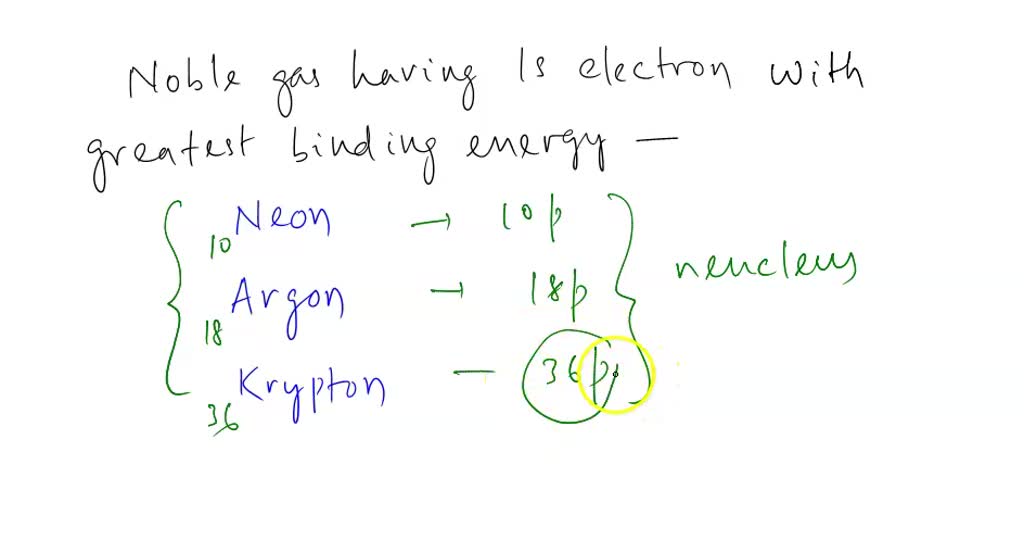 Noble gas having 1s electron with
greatest binding energy —
10 Neon → 10p
neucleus
18 Argon → 18p
36 Krypton — 36p